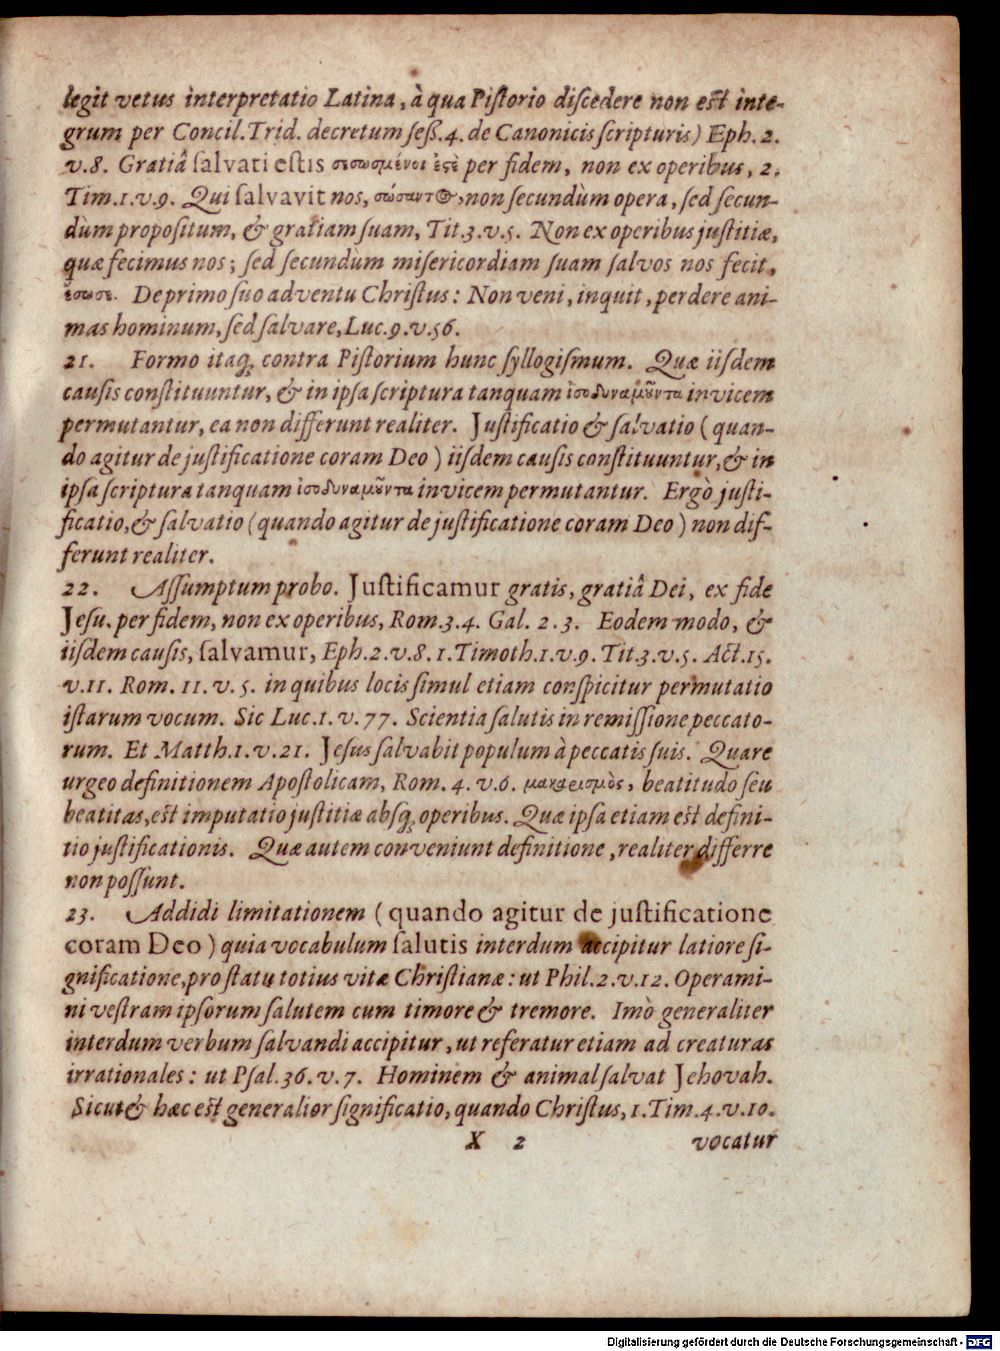 legit vetus interpretatio Latina, à qua Pistorio discedere non est inte-
grum per Concil. Trid. decretum seß. 4. de Canonicis scripturis) Eph. 2.
v. 8. Gratiâ salvati estis σεσωσμένοι ἐϛὲ per fidem, non ex operibus, 2.
Tim. 1. v. 9. Qui salvavit nos, σώσαντ@, non secundùm opera, sed secun-
dùm propositum, & gratiam suam, Tit. 3. v. 5. Non ex operibus justitiæ,
quæ fecimus nos; sed secundùm misericordiam suam salvos nos fecit,
ἔσωσε. De primo suo adventu Christus: Non veni, inquit, perdere ani-
mas hominum, sed salvare, Luc. 9. v. 56.
21. Formo itaq; contra Pistorium hunc syllogismum. Quæ iisdem
causis constituuntur, & in ipsa scriptura tanquam ἰσοδυναμοῦντα invicem
permutantur, ea non differunt realiter. Justificatio & salvatio (quan-
do agitur de justificatione coram Deo) iisdem causis constituuntur, & in
ipsa scriptura tanquam ἰσοδυναμοῦντα invicem permutantur. Ergò justi-
ficatio, & salvatio (quando agitur de justificatione coram Deo) non dif-
ferunt realiter.
22. Assumptum probo. Justificamur gratis, gratiâ Dei, ex fide
Jesu. per fidem, non ex operibus, Rom. 3. 4. Gal. 2. 3. Eodem modo, &
iisdem causis, salvamur, Eph. 2. v. 8. 1. Timoth. 1. v. 9. Tit. 3. v. 5. Act. 15.
v. 11. Rom. 11. v. 5. in quibus locis simul etiam conspicitur permutatio
istarum vocum. Sic Luc. 1. v. 77. Scientia salutis in remissione peccato-
rum. Et Matth. 1. v. 21. Jesus salvabit populum à peccatis suis. Quare
urgeo definitionem Apostolicam, Rom. 4. v. 6. μακαρισμὸς, beatitudo seu
beatitas, est imputatio justitiæ absq; operibus. Quæ ipsa etiam est defini-
tio justificationis. Quæ autem conveniunt definitione, realiter differre
non possunt.
23. Addidi limitationem (quando agitur de justificatione
coram Deo) quia vocabulum salutis interdum accipitur latiore si-
gnificatione, pro statu totius vitæ Christianæ: ut Phil. 2. v. 12. Operami-
ni vestram ipsorum salutem cum timore & tremore. Imò generaliter
interdum verbum salvandi accipitur, ut referatur etiam ad creaturas
irrationales: ut Psal. 36. v. 7. Hominem & animal salvat Jehovah.
Sicut & hæc est generalior significatio, quando Christus, 1. Tim. 4. v. 10.
X 2 vocatur
Digitalisierung gefördert durch die Deutsche Forschungsgemeinschaft - DFG